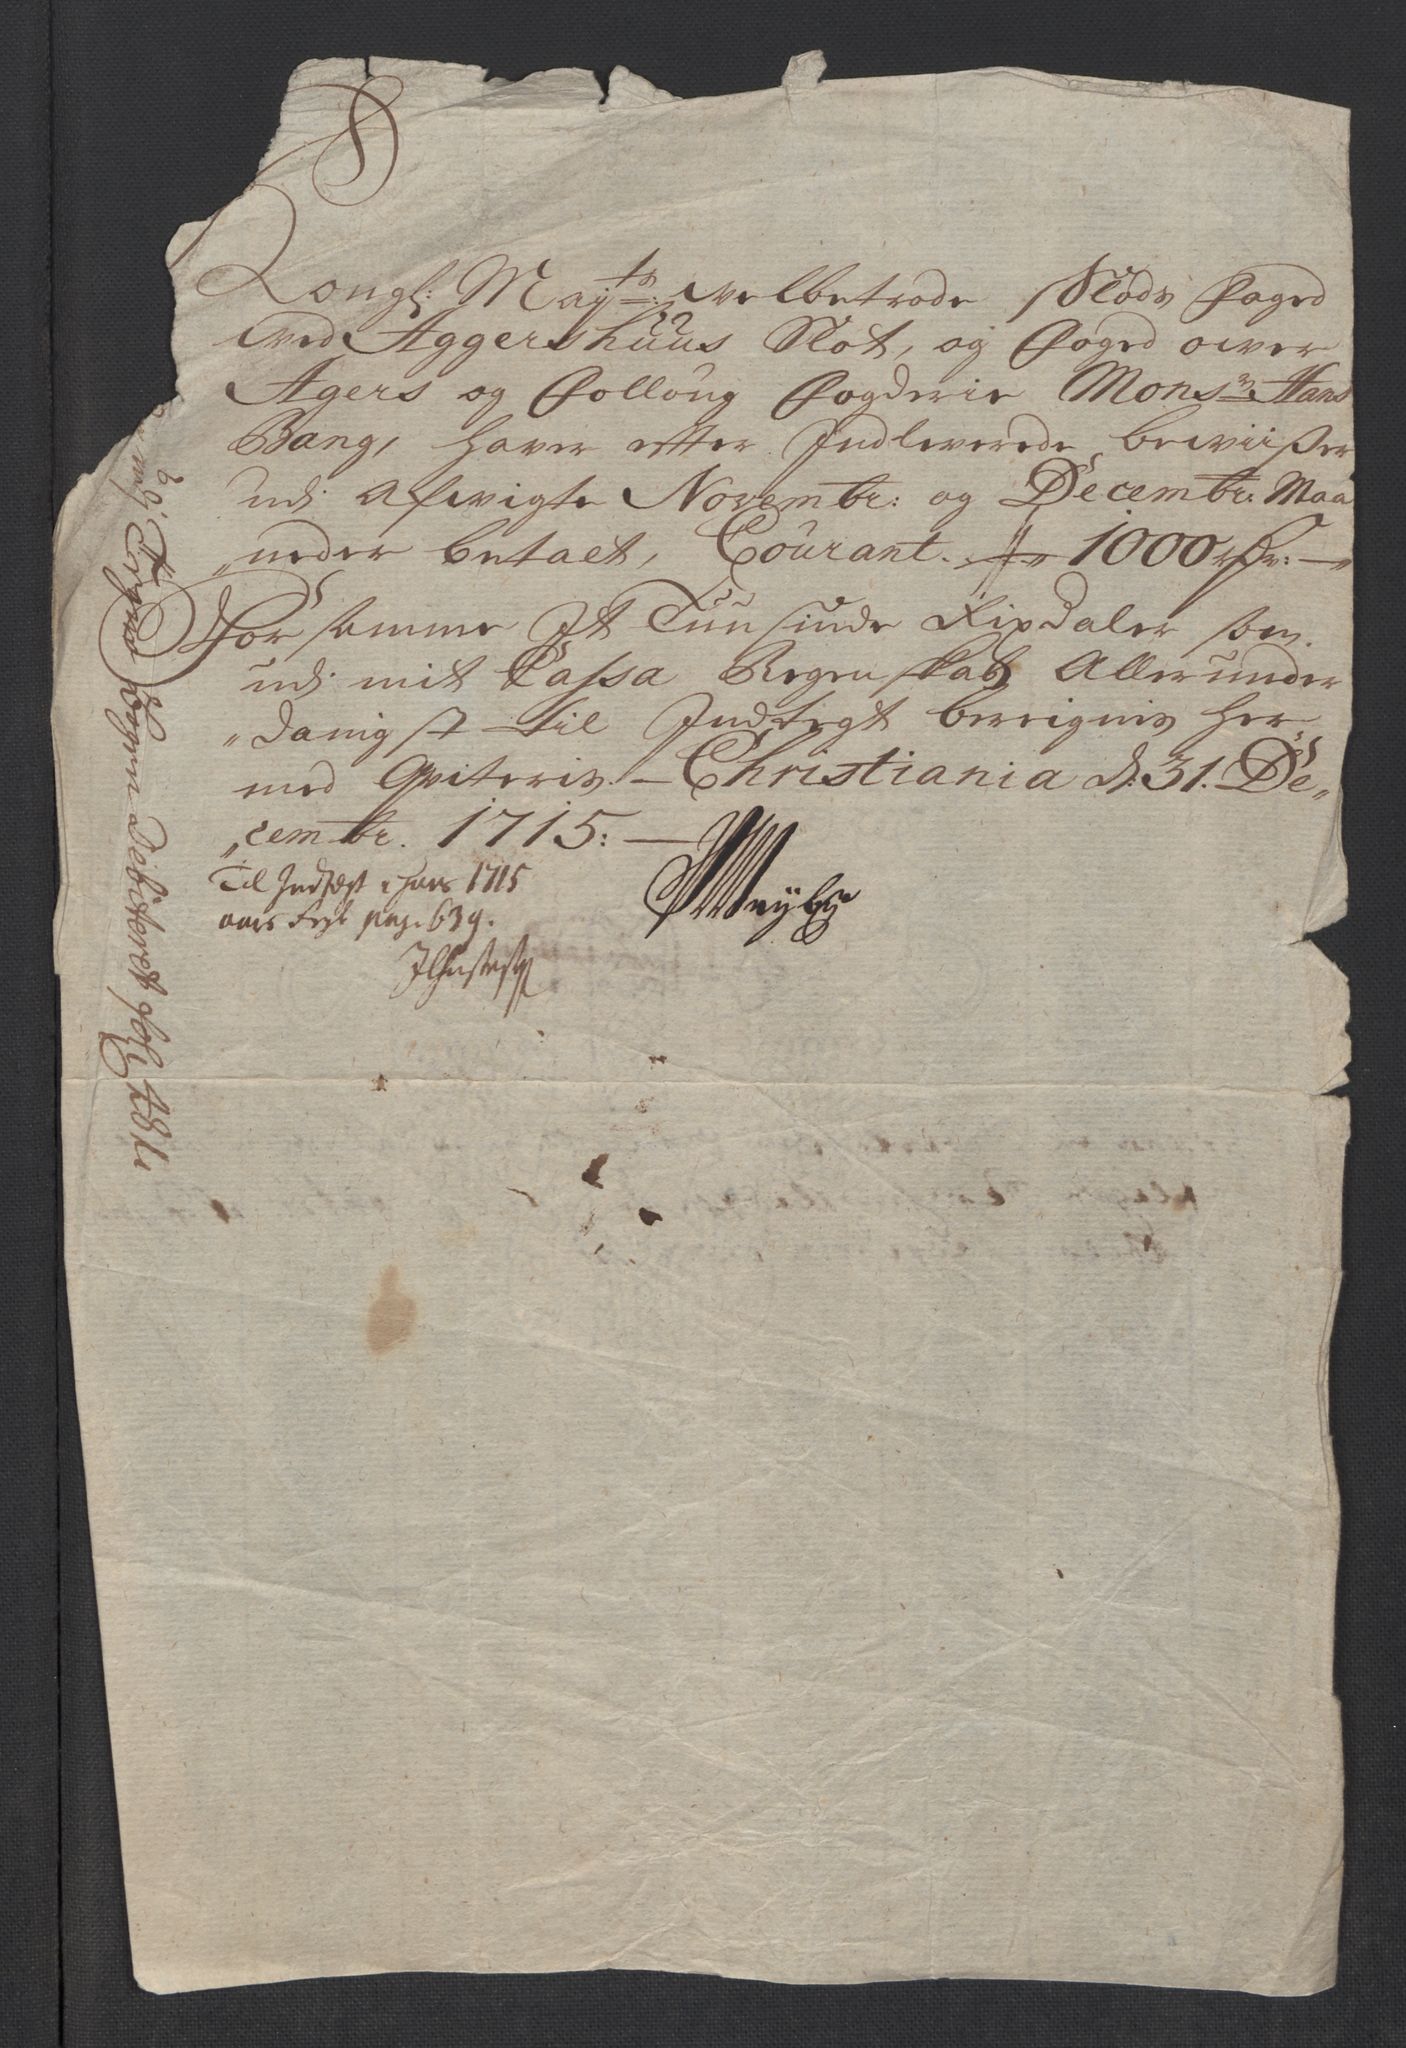 Kongl: May.ts velbetrode Slods Foged
ved Aggershuus Slot, og Foged over
Agers og Folloug Fogderie Monsr. Hans
Bang, haver efter Indleverede beviißer
udi Afvigte Novembr: og Decembr: Maa
„neder betalt, Courant. 1000 rdr: —
For samme Et Tuusinde Rixdaler som
udi mit Cassa Regenskab Allerunder
„danigst til Indtegt bereignis her
med Qviteris. — Christiania d: 31. De„
„cembr. 1715: —
Til Indtegt i hans 1715
aars pag. 639.